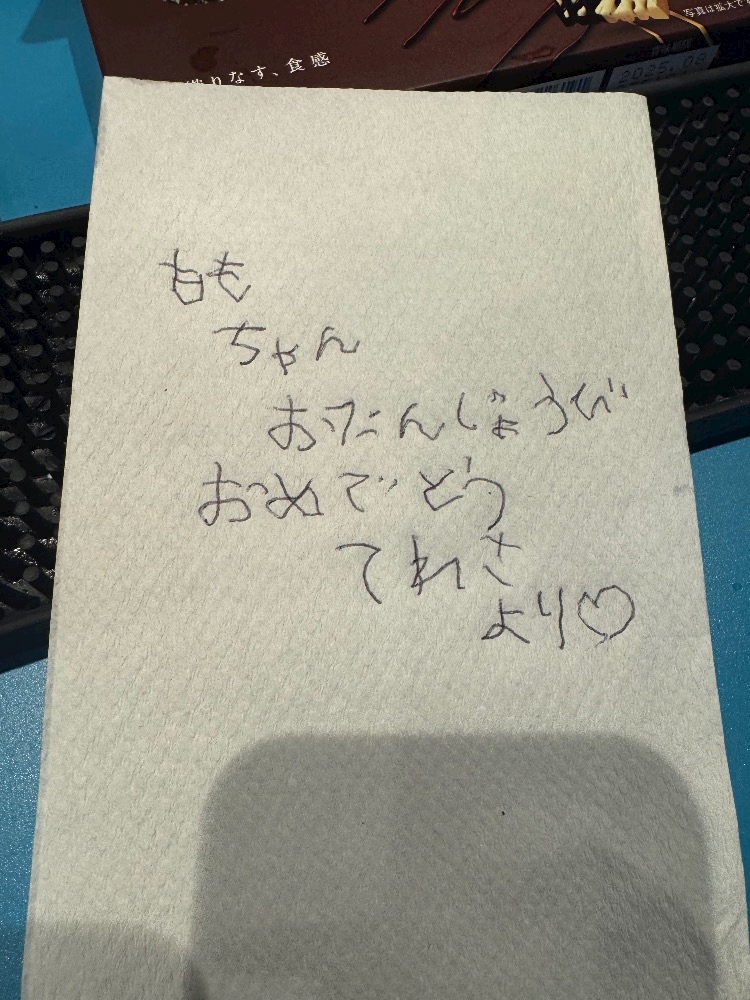 写真は拡大で
織りなす、食感
2025.08
もも
ちゃん
おたんじょうび
おめでとう
てれさ
より♡